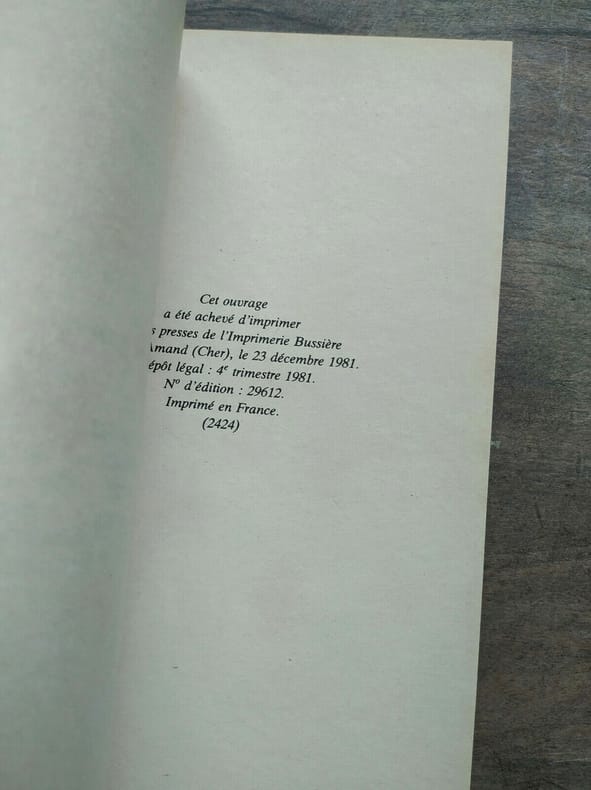 Cet ouvrage
a été achevé d'imprimer
presses de l'Imprimerie Bussière
(Cher), le 23 décembre 1981.
légal : 4e trimestre 1981.
No d'édition : 29612.
Imprimé en France.
(2424)